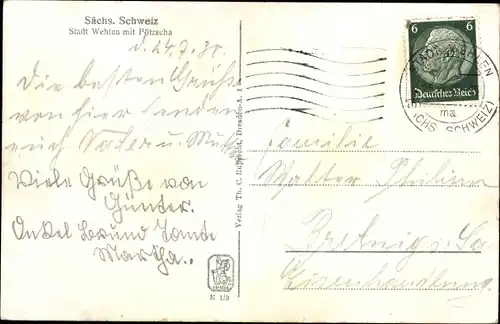 Sächs. Schweiz
Stadt Wehlen mit Pötzscha
d. 24.7.38.
Die besten Grüße
von hier senden
euch Vater u. Mutter
Viele Grüße von
Günter.
Onkel Bruno Tante
Martha..
Verlag Th. C. Ruprecht, Dresden-A. 1
K 1/3
6 6
Deutsches Reich
STADT WEHLEN
(SÄCHS. SCHWEIZ)
ma
Familie
Walter Philipp
Bretnig i. Sa
Eisenhandlung.